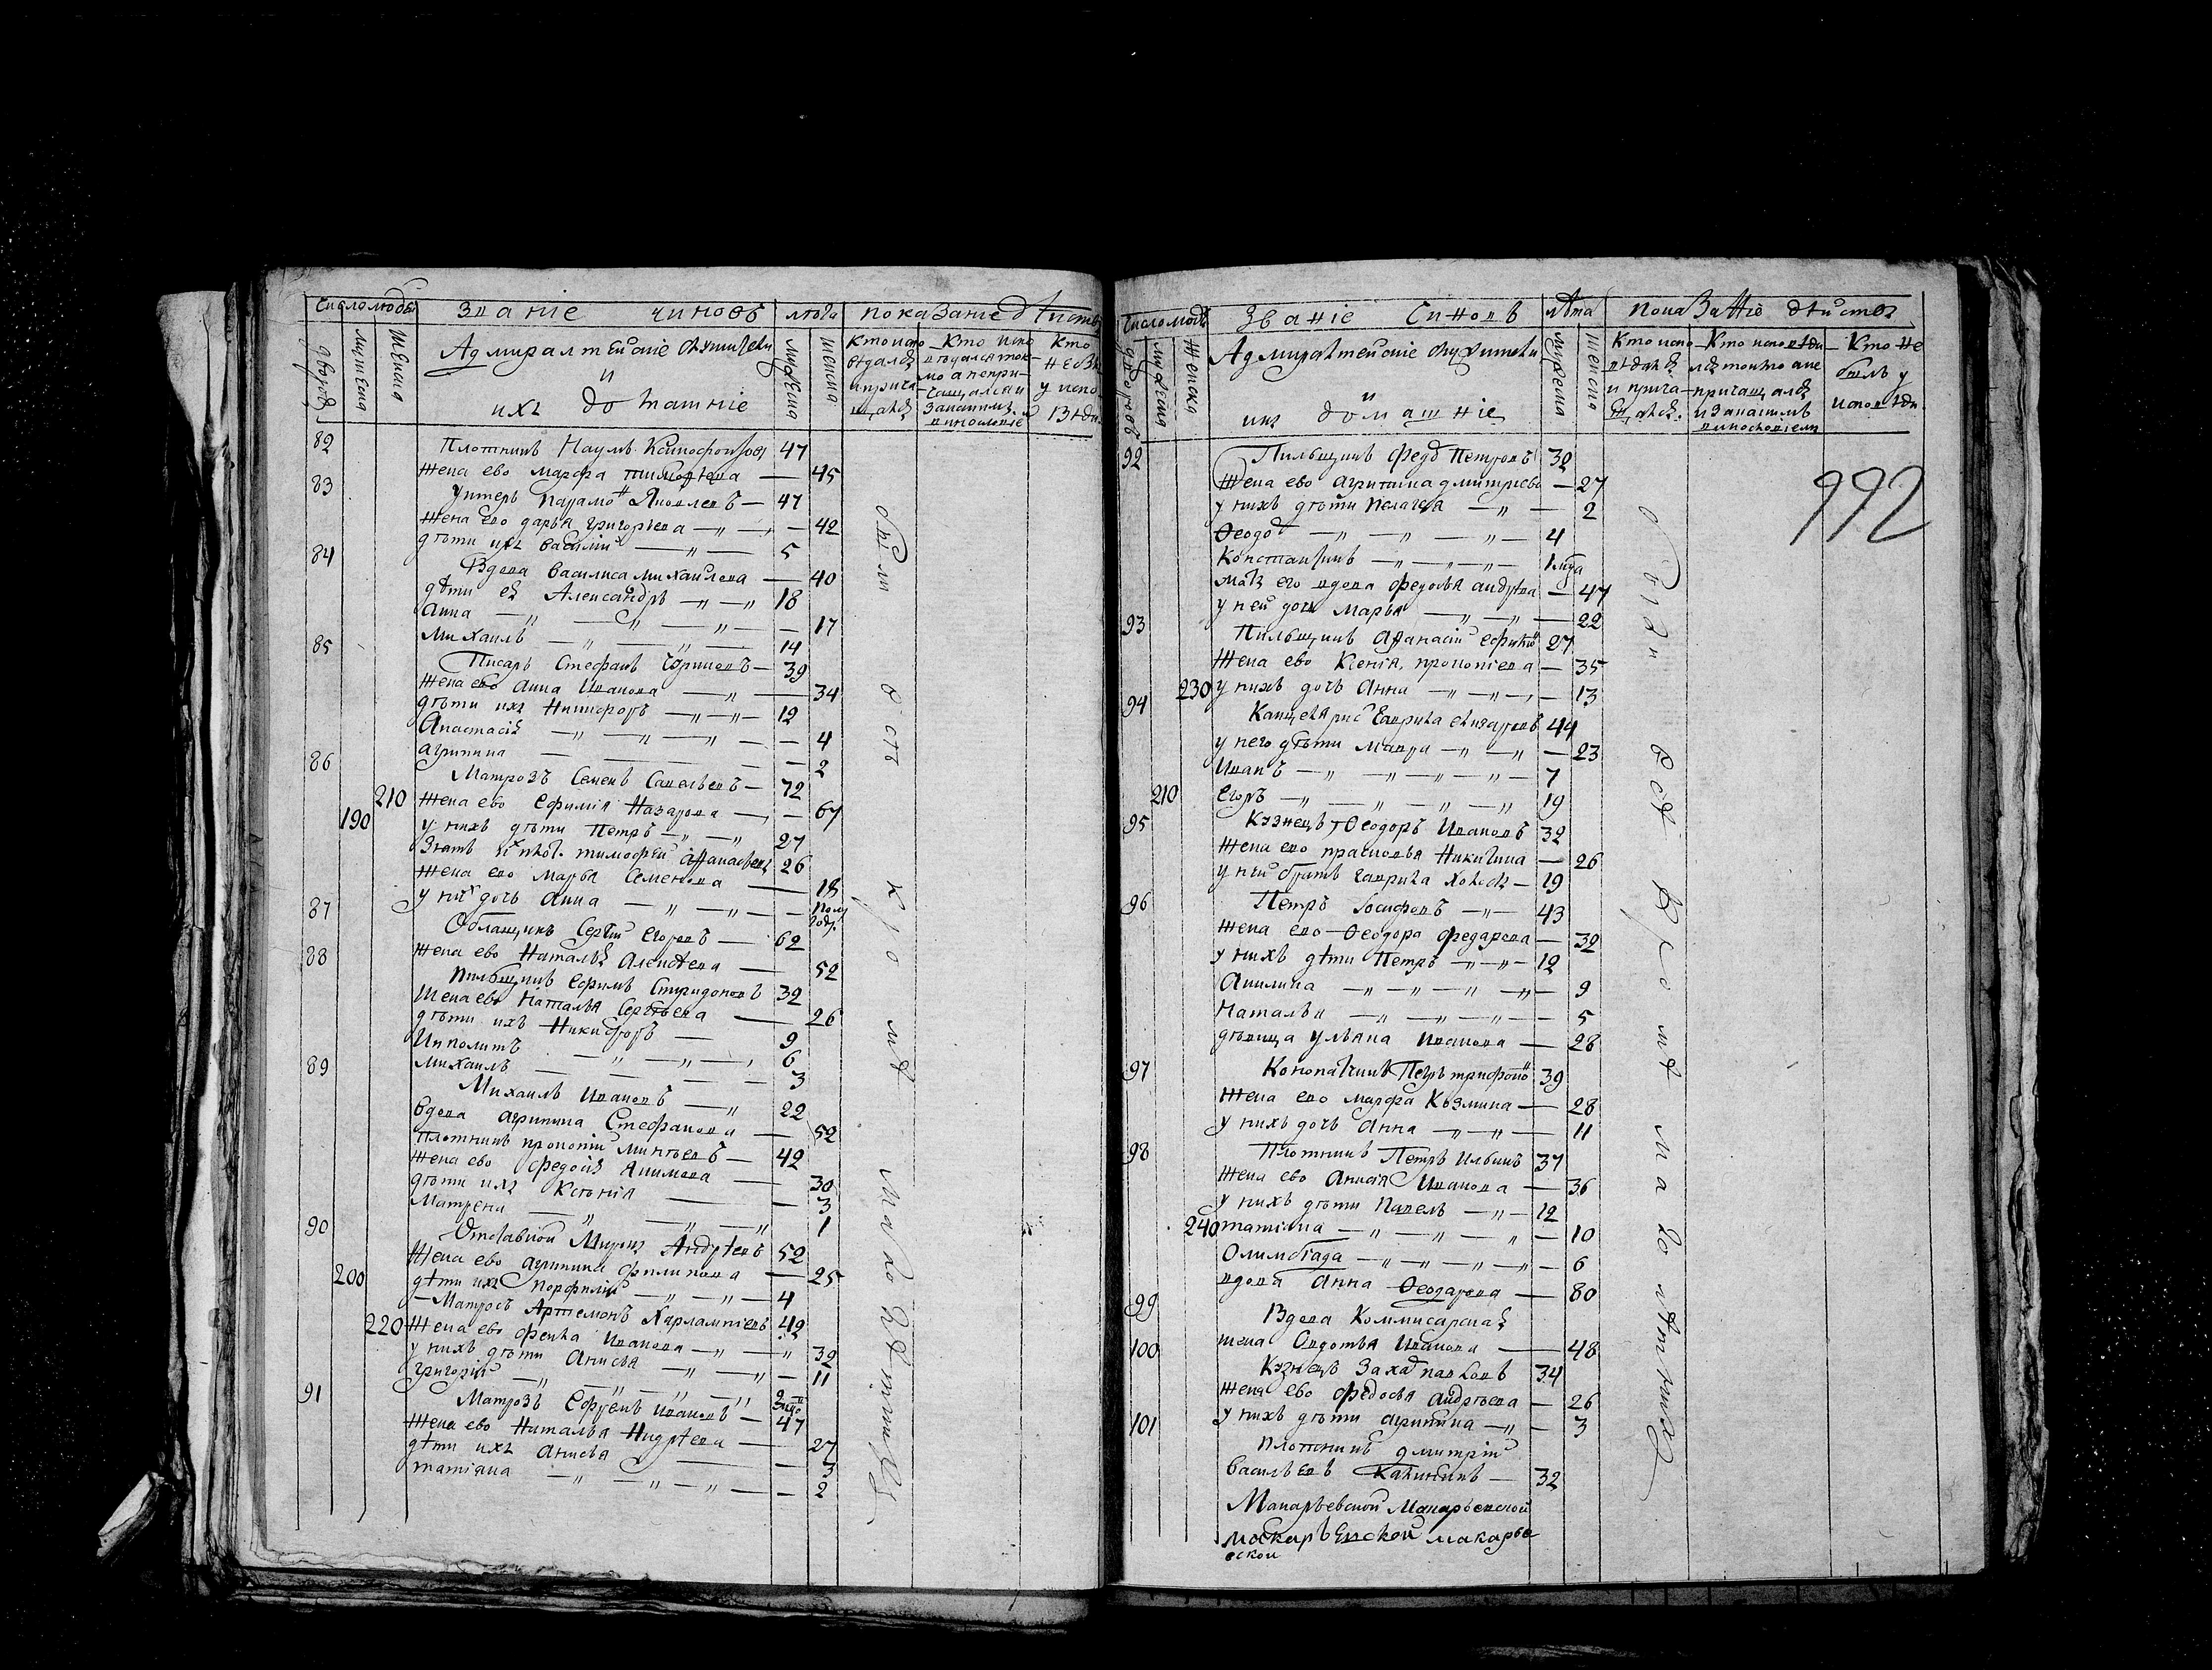 Число людей
Званіе чиновъ
лѣта
показаніе дѣиствъ
дворовъ
мужеска
женска
Адмиралтейскіе служители
и
ихъ домашніе
мужеска
женска
Кто испо
вѣдалсѧ
и прича
щалсѧ
Кто испо
вѣдалсѧ ток
мо а не при
чащалсѧ и
за каким
винословіе
Кто
не бы
у испо
вѣди
82 Плотникъ Наумъ Ксинофонтовъ 47
жена ево марфа тимофѣева — 45
83 Унтеръ Парамо Яковлевъ — 47
жена ево дарья григорьева — 42
дѣти ихъ василии — 5
84 Вдова василиса михаилова — 40
дѣти еѧ Александръ — 18
анна — 17
михаилъ — 14
85 Писарь Стефанъ — 39
жена ево анна Иванова — 34
дѣти ихъ Никифоръ — 12
Анастасіѧ — 4
агрипина — 2
86 Матрозъ Семенъ Савельевъ — 72
210 жена ево Ефимія Назарова — 67
190 у нихъ дѣти Петръ — 27
Зять тимофеи афанасьевъ 26
жена ево марья Семенова — 18
у них дочь анна — полу году
87 Сергѣи Егоровъ — 62
жена ево Наталья алексѣева — 52
88 пильщикъ Ефимъ Спиридоновъ 32
жена ево Наталья Сергѣева — 26
дѣти ихъ Никифоръ — 9
Ипполитъ — 6
михаилъ — 3
89 Михаилъ Ивановъ — 22
вдова агрипина Стефанова — 52
плотникъ прокопіи минѣевъ — 42
жена ево федосья Акимова — 30
дѣти ихъ Ксѣнія — 3
Матрена — 1
90 Отставнои Андрѣевъ 52
жена ево агрипина филипова — 25
200 дѣти ихъ порфилии — 4
Матросъ Артемонъ Харлампіевъ 42
220 жена ево фекла Иванова — 32
у нихъ дѣти Анисья — 11
григорій — 2
91 Матрозъ Ефремъ Ивановъ — 47
жена ево Наталья Андрѣева — 27
дѣти ихъ Анисья — 3
татіана — 2
были
всѣ
кромѣ
малолѣтнихъ
Число людей
Званіе Чиновъ
лѣта
показаніе дѣиствъ
дворовъ
мужеска
женска
Адмиралтейскіе служители
и
ихъ домашніе
мужеска
женска
Кто испо
вѣдалсѧ
и прича
щалсѧ
Кто исповѣда
лсѧ токмо а не
причащалсѧ
и за какимъ
винословіем
Кто не
былъ у
исповѣди
992
92 Пильщикъ Федо Петровъ 30
жена ево агрипина дмитриева — 27
у нихъ дѣти пелагея — 2
Ѳеодо — 4
Константинъ — 1 года
мать его вдова федосья андрѣева — 47
у неи дочь марья — 22
93 Пильщикъ афанасіи 27
жена ево Ксенія прокопіева — 35
230 у нихъ дочь анна — 13
94 Канцеляристъ Гаврила елизаровъ 44
у него дѣти мавра — 23
Иванъ — 7
210 Егоръ — 19
95 Кузнецъ Ѳеодоръ Ивановъ 32
жена ево прасковья Никитина — 26
у неи братъ гаврила — 19
96 Петръ Іосифовъ — 43
жена ево Ѳеодора федарова — 32
у нихъ дѣти Петръ — 12
Акилина — 9
Наталья — 5
дѣвица ульяна иванова — 28
97 Конопатчикъ Петръ трифоно 39
жена ево марфа Козмина — 28
у нихъ дочь Анна — 11
98 Плотникъ Петръ Ильинъ 37
жена ево Анисья Иванова — 36
у нихъ дѣти Павелъ — 12
240 татіана — 10
Олимбіада — 6
вдова Анна Ѳеодарова — 80
99 Вдова Коммисарскаѧ
жена Овдотья Иванова — 48
100 Кузнецъ Заха павловъ 34
жена ево федосья андрѣева — 26
у нихъ дѣти агрипина — 3
101 плотникъ дмитріи
васильевъ Калининъ — 32
Макарьевской Макарьевской
макарьевской макарье
вской
были
всѣ
кромѣ
малолѣтнихъ